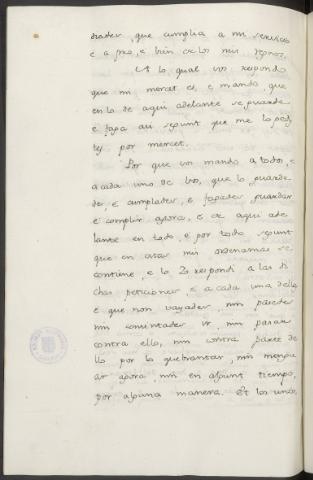 drades, que cumplia a mi servicio
e a pro, e bien de los mis regnos.
A lo qual vos respondo
que mi mercet es, e mando que
en lo de aqui adelante se guarde
e faga asi segunt que me lo pedis
tes por mercet.
Por que vos mando a todos, e
a cada uno de vos, que lo guarde
des, e cumplades, e fagades guardar
e complir agora, e de aqui ade
lante en todo, e por todo segunt
que en estas mis ordenanzas se
contiene, e lo Yo respondi a las di
chas peticiones e a cada una dellas
e que non vayades, nin pasedes
nin consintades ir, nin pasar
contra ello, nin contra parte de
llo por lo quebrantar, nin mengu
ar agora, nin en algunt tiempo,
por alguna manera. Et los unos,